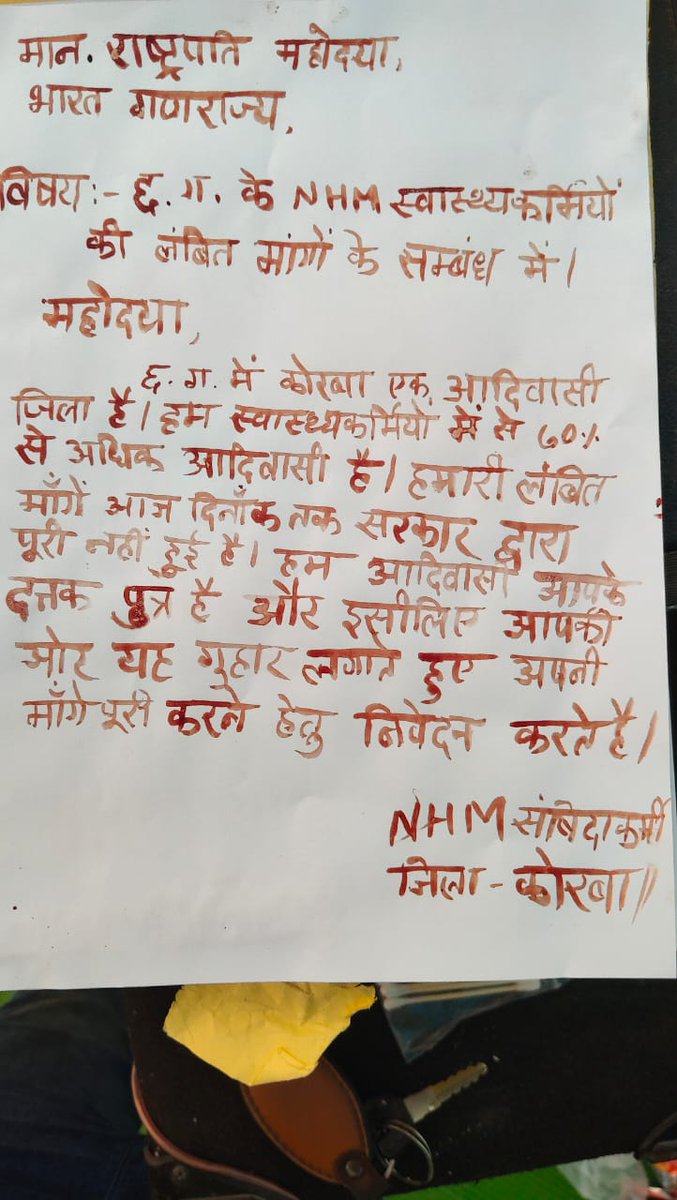 मान. राष्ट्रपति महोदया,
भारत गणराज्य,
विषय:- छ.ग. के NHM स्वास्थ्यकर्मियों
की लंबित मांगों के सम्बंध में।
महोदया,
छ.ग. में कोरबा एक आदिवासी
जिला है। हम स्वास्थ्यकर्मियो में से ७०%
से अधिक आदिवासी है। हमारी लंबित
माँगें आज दिनाँक तक सरकार द्वारा
पूरी नहीं हुई है। हम आदिवासी आपके
दत्तक पुत्र है और इसीलिए आपकी
ओर यह गुहार लगाते हुए अपनी
माँगे पूरी करने हेतु निवेदन करते है।
NHM संविदाकर्मी
जिला - कोरबा॥